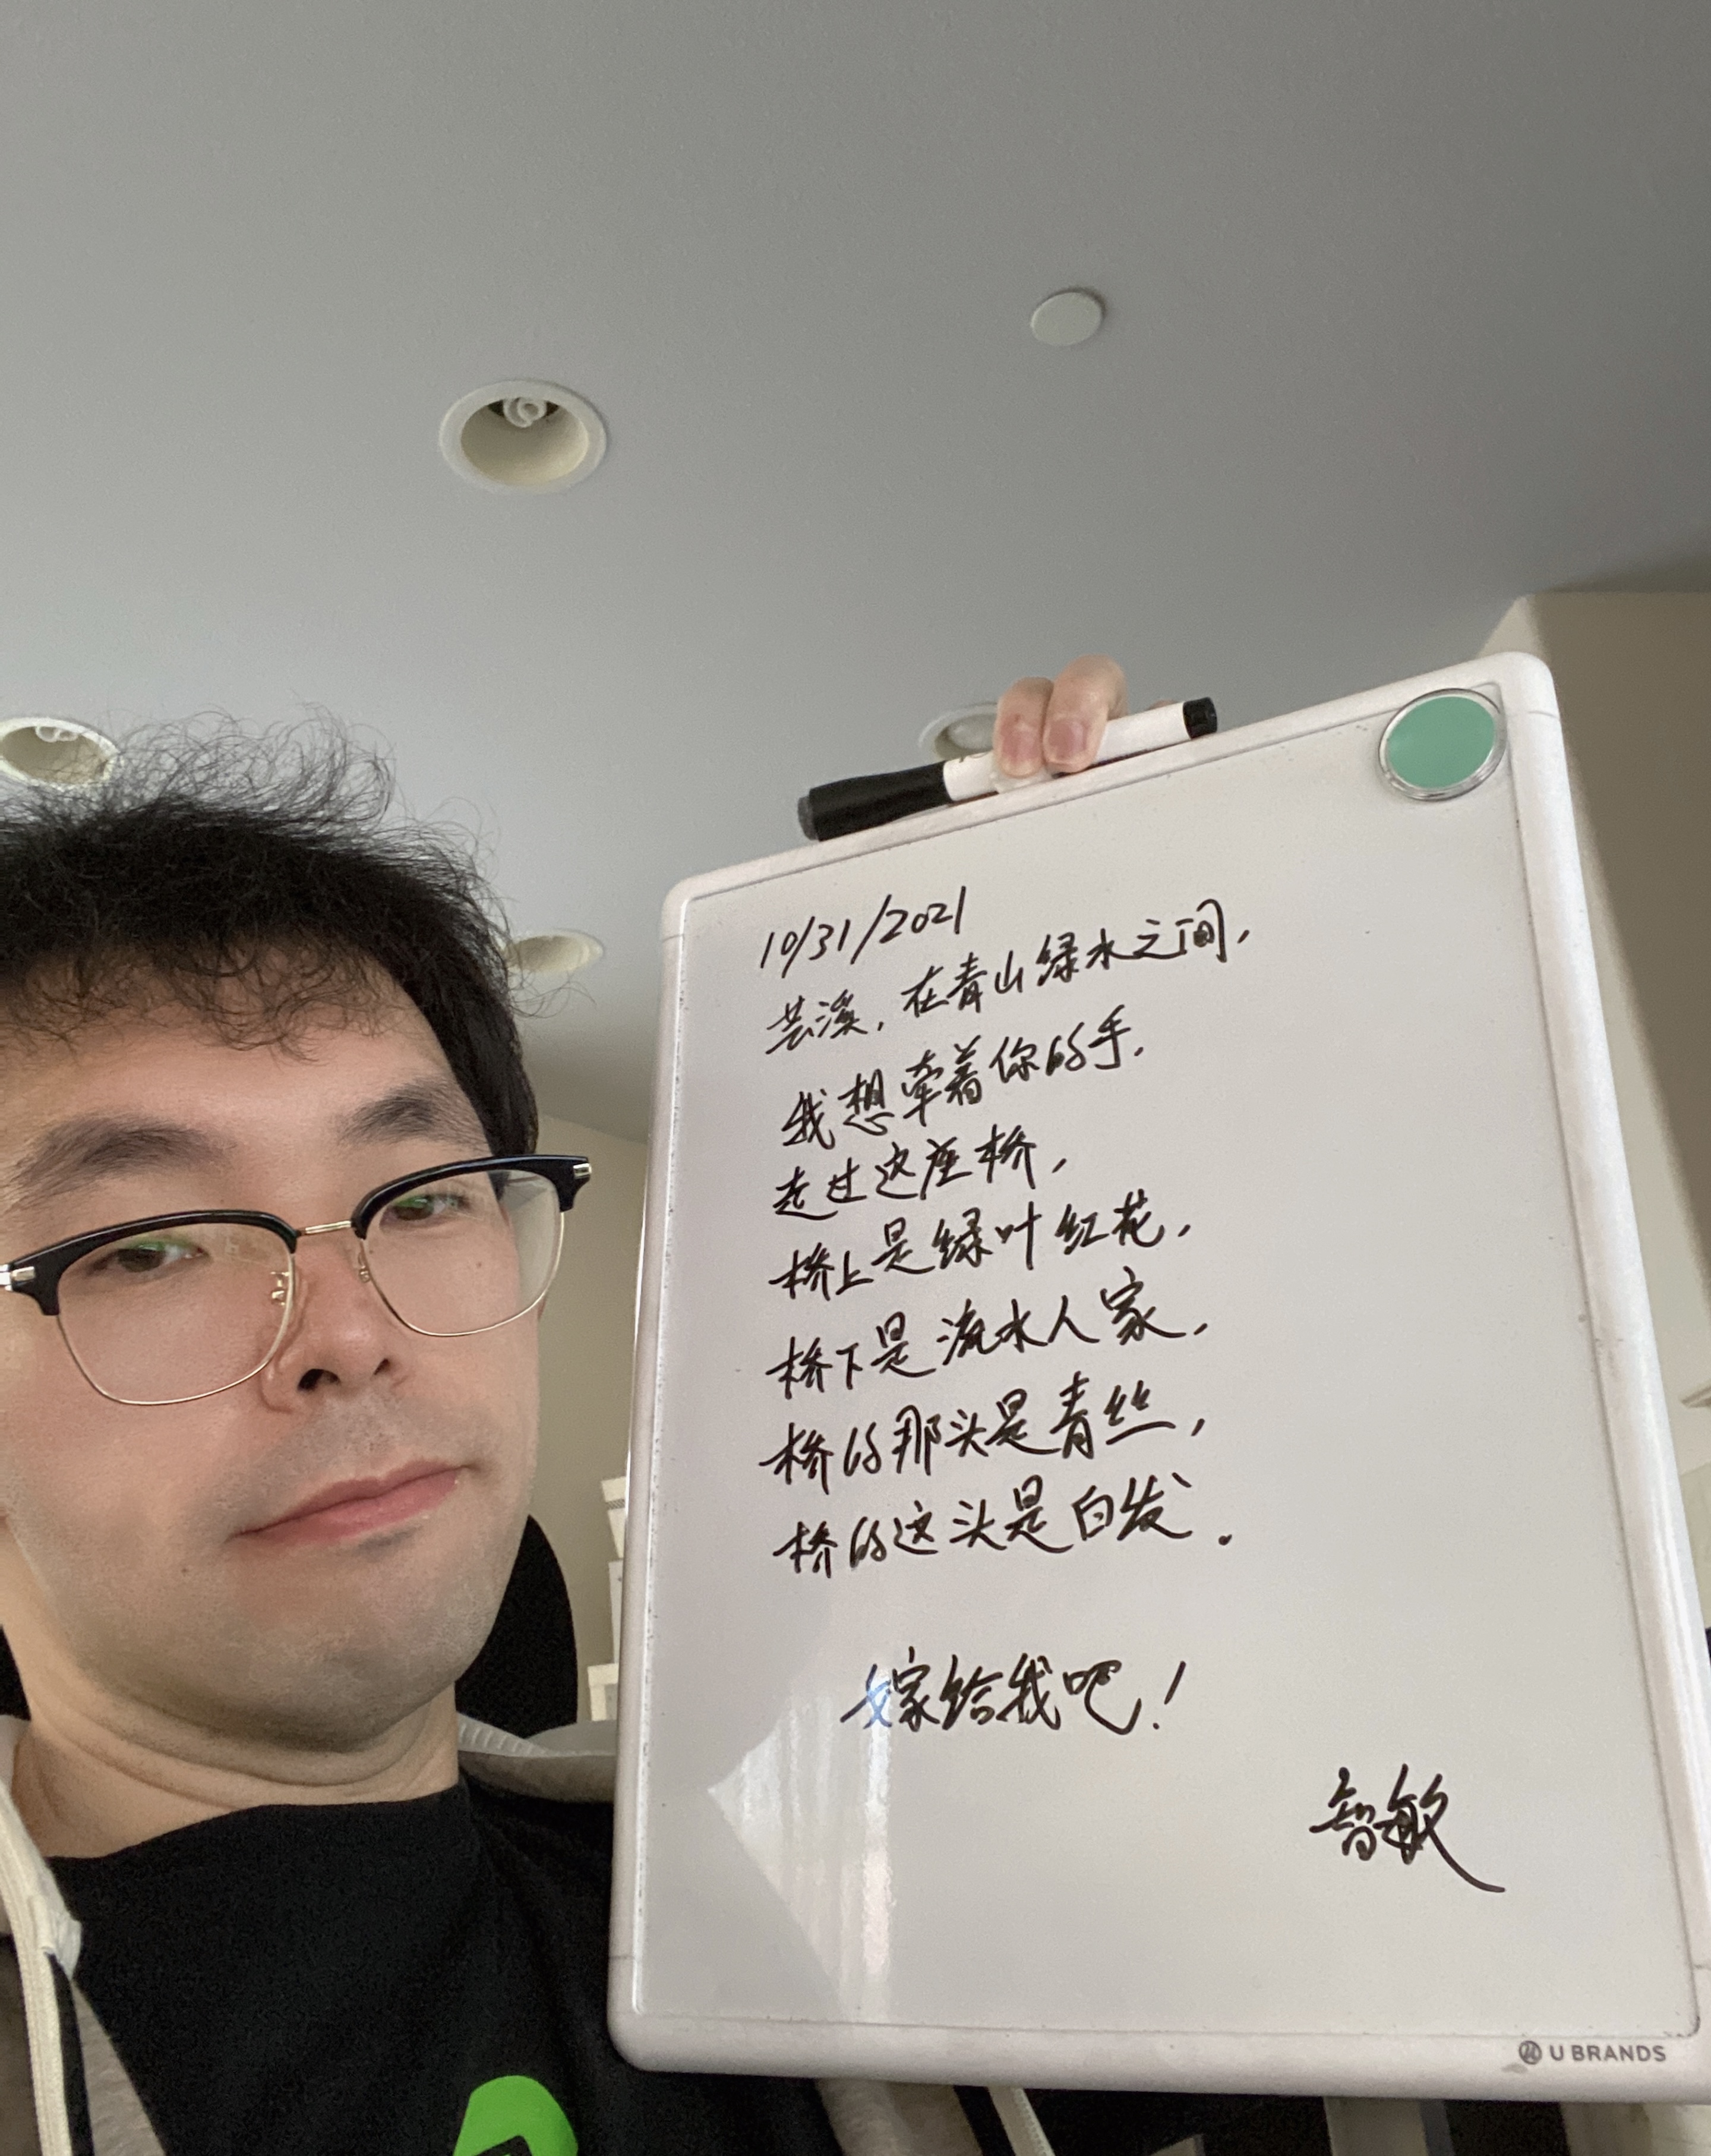 10/31/2021
芸溪，在青山绿水之间，
我想牵着你的手，
走过这座桥，
桥上是绿叶红花，
桥下是流水人家，
桥的那头是青丝，
桥的这头是白发。
嫁给我吧！
智敏
U BRANDS